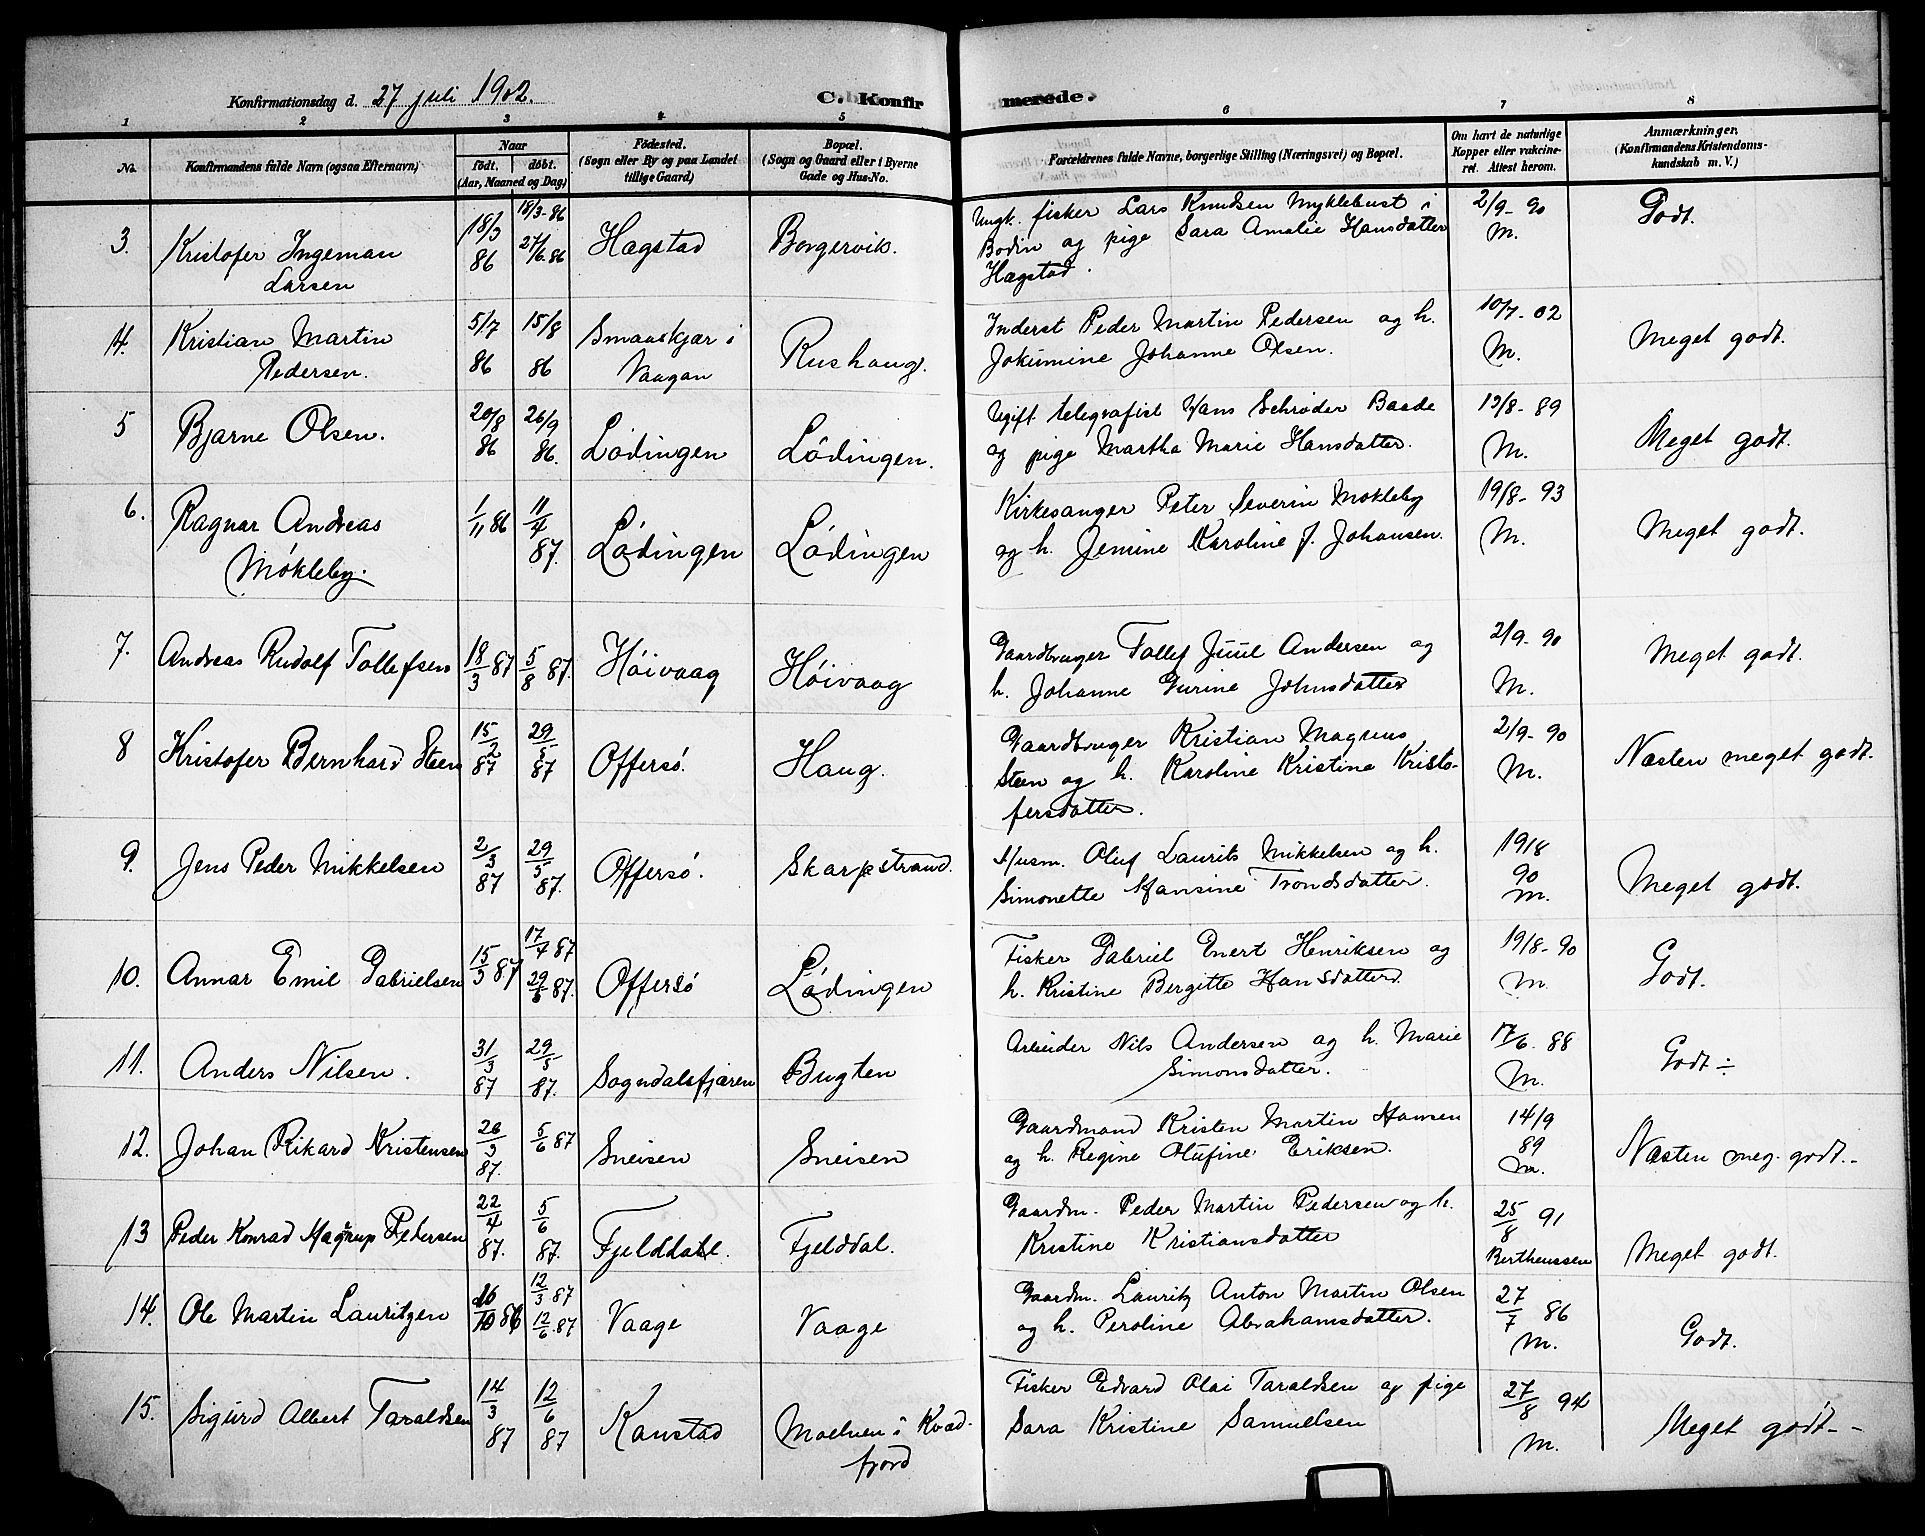 Konfirmationsdag d. 27 juli 1902.
C. Konfirmerede.
1 2 3 4 5 6 7 8
No.
Konfirmandens fulde Navn (ogsaa Efternavn)
Naar
født. døbt.
(Aar, Maaned og Dag)
Fødested.
(Sogn eller By og paa Landet
tillige Gaard)
Bopæl.
(Sogn og Gaard eller i Byerne
Gade og Hus-No.
Forældrenes fulde Navne, borgerlige Stilling (Næringsvei) og Bopæl.
Om havt de naturlige
Kopper eller vakcine-
ret. Attest herom.
Anmærkninger.
(Konfirmandens Kristendoms-
kundskab m. V.)
3. Kristofer Ingeman
Larsen
18/3
86
18/3-86
27/6.86
Hægstad
Borgervik.
Ungk. fisker Lars Knudsen Myklebust i
Bodin og pige Sara Amalie Hansdatter
Hægstad.
2/9-90
M.
Godt.
4. Kristian Martin
Pedersen.
5/7
86
15/8
86
Smaaskjær i
Vaagan
Rushaug.
Inderst Peder Martin Pedersen og h.
Jokumine Johanne Olsen.
10/7-02
M.
Meget godt.
5 Bjarne Olsen.
20/8
86
26/9
86.
Lødingen
Lødingen.
Ugift telegrafist Hans Schrøder Baade
og pige Martha Marie Hansdatter.
19/8-89
M.
Meget godt.
6. Ragnar Andreas
Møkleby.
1/11 86
11/4
87.
Lødingen
Lødingen
Kirkesanger Peter Severin Møkleby
og h. Jemine Karoline f. Johansen.
19/8-93
M.
Meget godt.
7. Andreas Rudolf Tollefsen
18/3 87
5/8 87.
Høivaag
Høivaag
Gaardbruger Tollef Juul Andersen og
h. Johanne Gurine Johnsdatter
2/9-90
M.
Meget godt.
8 Kristofer Bernhard Steen
15/2
87
29/5
87
Offersø.
Haug.
Gaardbruger Kristian Magnus
Steen og h. Karoline Kristine Kristo-
fersdatter.
2/9-90
M.
Næsten meget godt.
9. Jens Peder Mikkelsen
2/3
87
29/5
87.
Offersø.
Skarpstrand.
Husm. Oluf Laurits Mikkelsen og h.
Simonette Hansine Trondsdatter.
19/8
90
M.
Meget godt.
10. Annar Emil Gabrielsen
15/3 87
17/4 87
29/5 87.
Offersø
Lødingen
Fisker Gabriel Enert Henriksen og
h. Kristine Bergitte Hansdatter
19/8-90
M.
Godt.
11. Anders Nilsen.
31/3
87
29/5
87.
Sogndalsfjæren
Bugten
Arbeider Nils Andersen og h. Marie
Simonsdatter.
17/6. 88
M.
Godt ÷
12. Johan Rikard Kristensen
26/3
87.
5/6 87
Sneisen
Sneisen
Gaardmand Kristen Martin Hansen
og h. Regine Olufine Eriksen.
14/9
89
M.
Næsten meg. godt.-
13 Peder Konrad Hagrup Pedersen
22/4
87.
5/6
87.
Fjelddal.
Fjelddal.
Gaardm. Peder Martin Pedersen og h.
Kristine Kristiansdatter
25/8 91
Bertheussen
Meget godt.
14. Ole Martin Lauritzen
10 86
12/3 87
12/6.87
Vaage
Vaage
Gaardm. Lauritz Anton Martin Olsen
og h. Peroline Abrahamsdatter.
27/7 86
M.
Godt.
15. Sigurd Albert Taraldsen
14/3
87
12/6
87
Kanstad
Moelven i Kvad-
fjord
Fisker Edvard Olai Taraldsen og pige
Sara Kristine Samuelsen
27/8 94
M.
Meget godt--